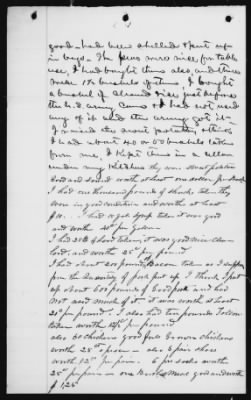 good - had been shelled & put up
in bags - The peas were nice for table
use, I had bought them also, and there
were 1½ bushels of them, I bought
a bushel of cleaned rice just before
the U.S. army came & I had not used
any of it and the army got it -
I raised the sweet potatoes, & think
I had about 40 or 50 bushels taken
from me, I kept them in a cellar
under my kitchen they were sweet potatoes
good and sound worth at least one dollar per bushel
I had one thousand pounds of shucks taken they
were in good condition and worth at least
$10.. I had syrup taken it was good
and worth per gallon
I had of lard taken, it was good nice clean
lard, and worth 25¢ per pound.
I had about pounds Bacon taken as I suppose
from the quantity of pork put up I think I put
up about 600 pounds of good pork and had
not used much of it - it was worth at least
20¢ per pound. I also had ten pounds Tallow
taken worth per pound
also 60 chickens good full grown chickens
worth 25 cts apiece - also 2 pair shoes
worth per pair. 6 pr socks worth
25¢ per pair - one Bushel meal good and worth
$1.25